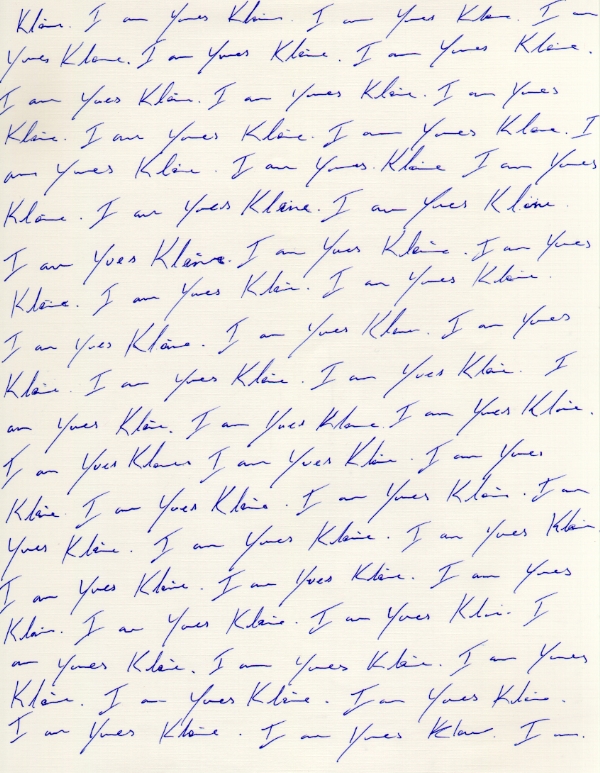 Klein. I am Yves Klein. I am Yves Klein. I am
Yves Klein. I am Yves Klein. I am Yves Klein.
I am Yves Klein. I am Yves Klein. I am Yves
Klein. I am Yves Klein. I am Yves Klein. I
am Yves Klein. I am Yves Klein I am Yves
Klein. I am Yves Klein. I am Yves Klein.
I am Yves Klein. I am Yves Klein. I am Yves
Klein. I am Yves Klein. I am Yves Klein.
I am Yves Klein. I am Yves Klein. I am Yves
Klein. I am Yves Klein. I am Yves Klein. I
am Yves Klein. I am Yves Klein. I am Yves Klein.
I am Yves Klein I am Yves Klein. I am Yves
Klein. I am Yves Klein. I am Yves Klein. I am
Yves Klein. I am Yves Klein. I am Yves Klein
I am Yves Klein. I am Yves Klein. I am Yves
Klein. I am Yves Klein. I am Yves Klein. I
am Yves Klein. I am Yves Klein. I am Yves
Klein. I am Yves Klein. I am Yves Klein.
I am Yves Klein. I am Yves Klein. I am.